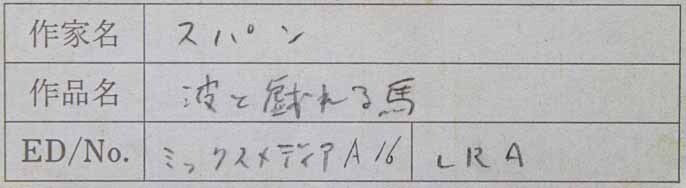 作家名 スパン
作品名 波と戯れる馬
ED/No. ミックスメディアA16 LRA